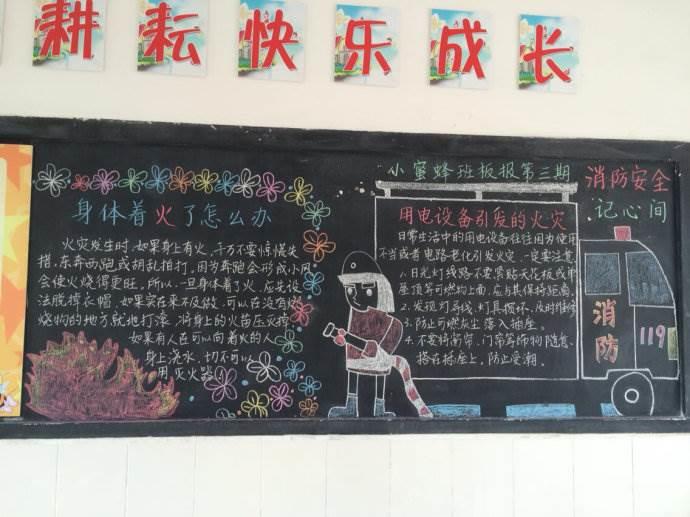 耕耘快乐成长
小蜜蜂班板报第三期
消防安全
记心间
身体着火了怎么办
火灾发生时,如果身上有火,千万不要惊慌失
措,东奔西跑或胡乱拍打,因为奔跑会形成小风
会使火烧得更旺。所以,一旦身体着火,应先设
法脱掉衣帽,如果实在来不及做,可以在没有燃
烧物的地方就地打滚,将身上的火苗压灭掉。
如果有人在可以向着火的人
身上浇水,切不可以
用灭火器!
用电设备引发的火灾
日常生活中的用电设备往往因为使用
不当或者电路老化引发火灾,一定要注意
1.日光灯线路不要紧贴天花板或
屋顶等可燃物上面,应与其保持距离。
2.发现灯导线、灯具损坏,及时维修
3.防止可燃灰尘落入插座。
4.不要将窗帘、门帘等饰物随意
搭在插座上,防止受潮。
消防
119